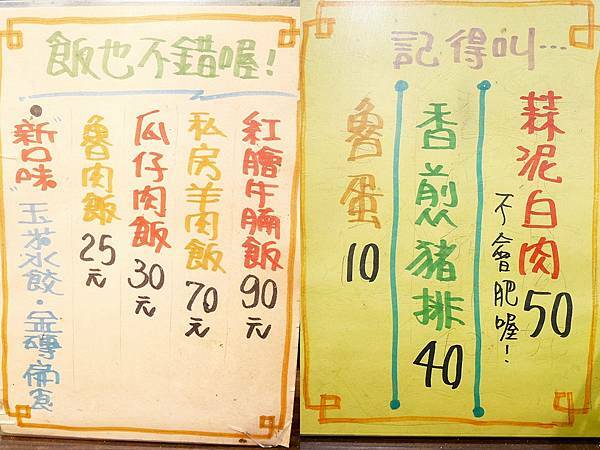 飯也不錯喔!
紅膾牛腩飯 90元
私房羊肉飯 70元
瓜仔肉飯 30元
魯肉飯 25元
"新口味" 玉米水餃·金磚備食
記得叫…
蒜泥白肉 50
不會肥喔!
香煎豬排 40
魯蛋 10